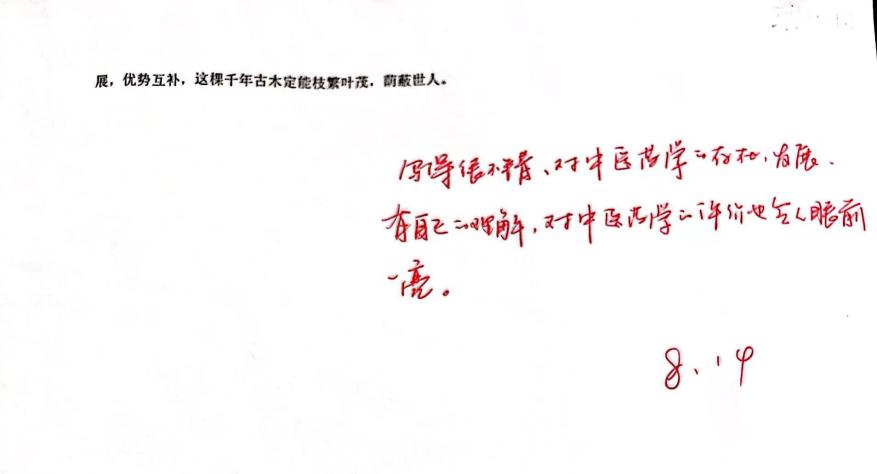 展，优势互补，这棵千年古木定能枝繁叶茂，荫蔽世人。
写得很不错、对中医药学的存在、发展、
有自己的理解，对中医药学的评价也令人眼前
一亮。
8.14